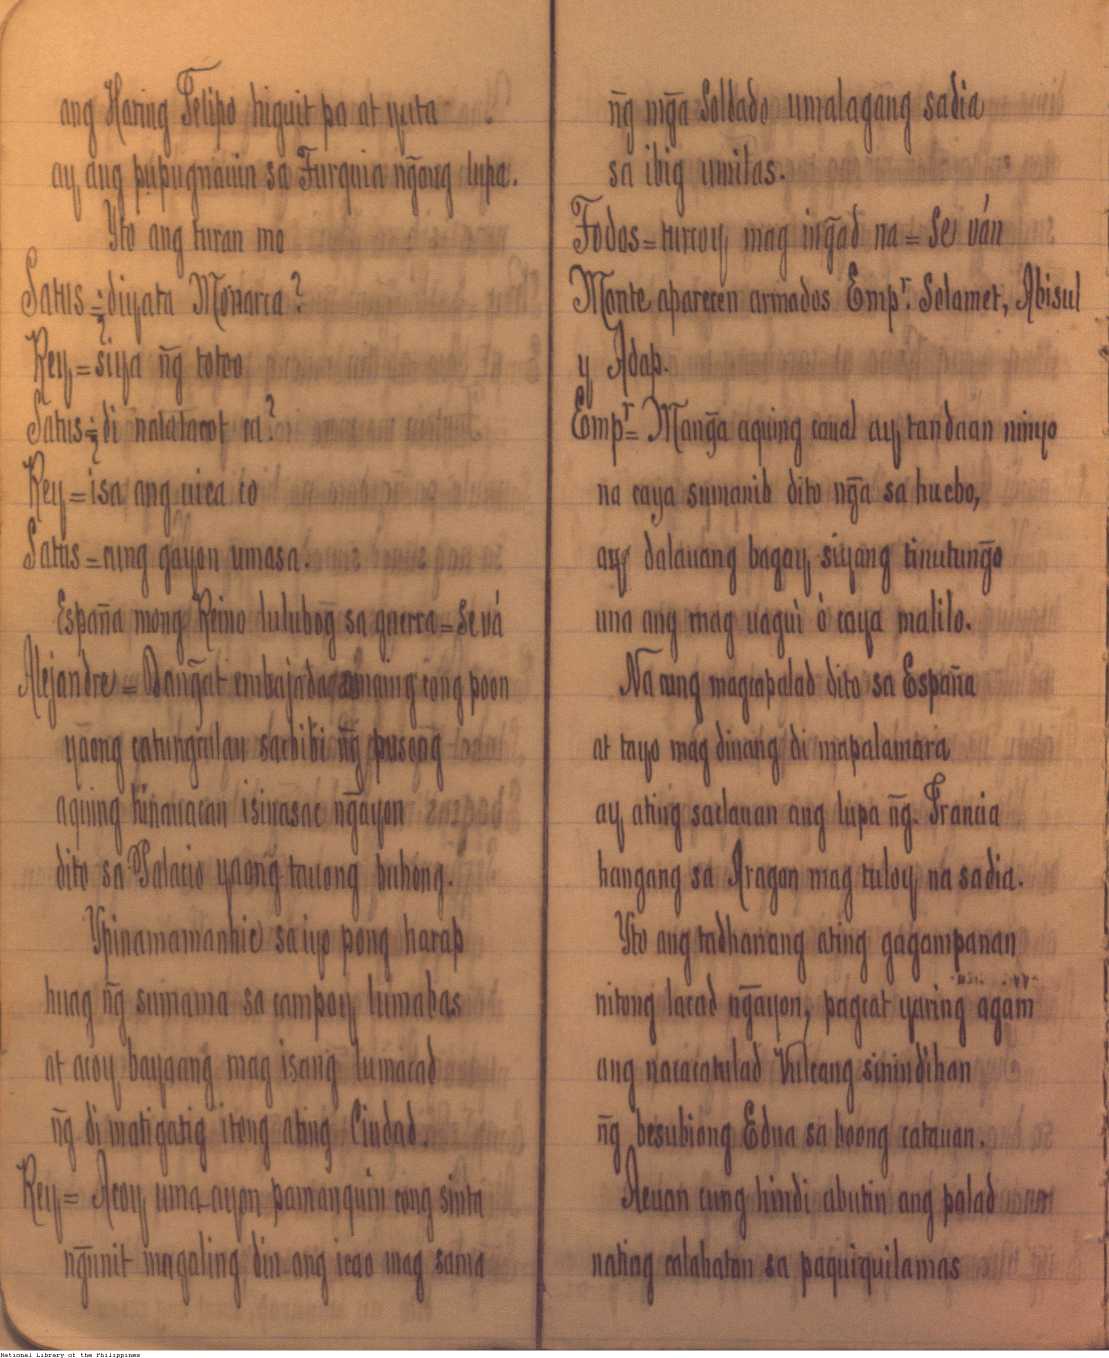 ang Haring Felipo higuit pa at nuta
ay ang pupugnauin sa Turquia ng̃ong lupa.
Yto ang turan mo
Satus = diyata Monarca?
Rey = siya ng̃ totoo
Satus = di nalalacot ca?
Rey = isa ang uica co
Satus = cung gayon umasa.
España mong Reino lulubog̃ sa guerra = Se vá
Alejandre = Dang̃at embajada cong poon
yaong catung̃culan sacbibi ng̃ pusong
aquing hinauacan isinasac ng̃ayon
dito sa Palacio yaong̃ tauong buhong.
Ypinamamanhic sa iyo pong harap
huag ng̃ sumama sa campoy lumabas
at acoy bayaang mag isang̃ lumacad
ng̃ di matigatig itong ating Ciudad.
Rey = Acoy uma-ayon pamanquin cong sinta
ng̃unit magaling din ang icao mag sama
ng̃ mg̃a Soldado umalagang̃ sadia
sa ibig umitas.
Todos = turcoy mag ing̃ad na = Se ván
Monte aparecen armados Emp.r Selamet, Abisul
y Adap.
Emp.r = Mang̃a aquing caual ay tandaan ninyo
na caya sumanib dito ng̃a sa huebo,
ay dalauang bagay siyang tinutung̃o
una ang mag uagui ò caya malilo.
Na cung magcapalad dito sa España
at tayo mag diuang di mapalamara
ay ating saclauan ang lupa ng̃. Francia
hangang sa Aragon mag tuloy na sadia.
Yto ang tadhanang ating gagampanan
nitong lacad ng̃ayon, pagcat yaring agam
ang nacacatulad Vulcang sinindihan
ng̃ besubiong Edna sa boong catauan.
Acuan cung hindi abutin ang palad
natiag calahatan sa paquiquilamas